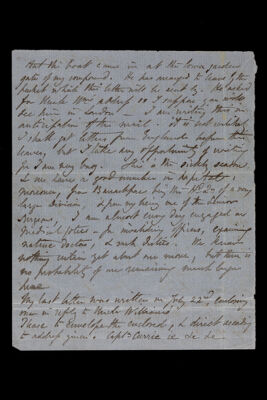 that the boat came in at the lower garden
gate of my compound. He has arranged to leave by the
packet in which this letter will be sent by. He asked
for Uncle Wms address so I suppose you would
see him in London — I am writing this in
anticipation of the mail. It is not certain
I shall get letters from England before this
leaves, but I take any opportunity of writing
as I am very busy. This is the sickly season
& we have a good number in Hospital;
moreover, for Barrackpore being the Hd Qrs of a very
large Division, & from my being one of the Senior
Surgeons, I am almost every day engaged on
Medical Committees - for invaliding officers, examining
native doctors, & such duties. We know
nothing certain yet about our move, but there is
no probability of our remaining much longer
here
My last letter was written on July 22d enclosing
one in reply to Uncle William's
I have to Envelope the enclosed, & direct according
to address given. Captn Currie &c &c &c